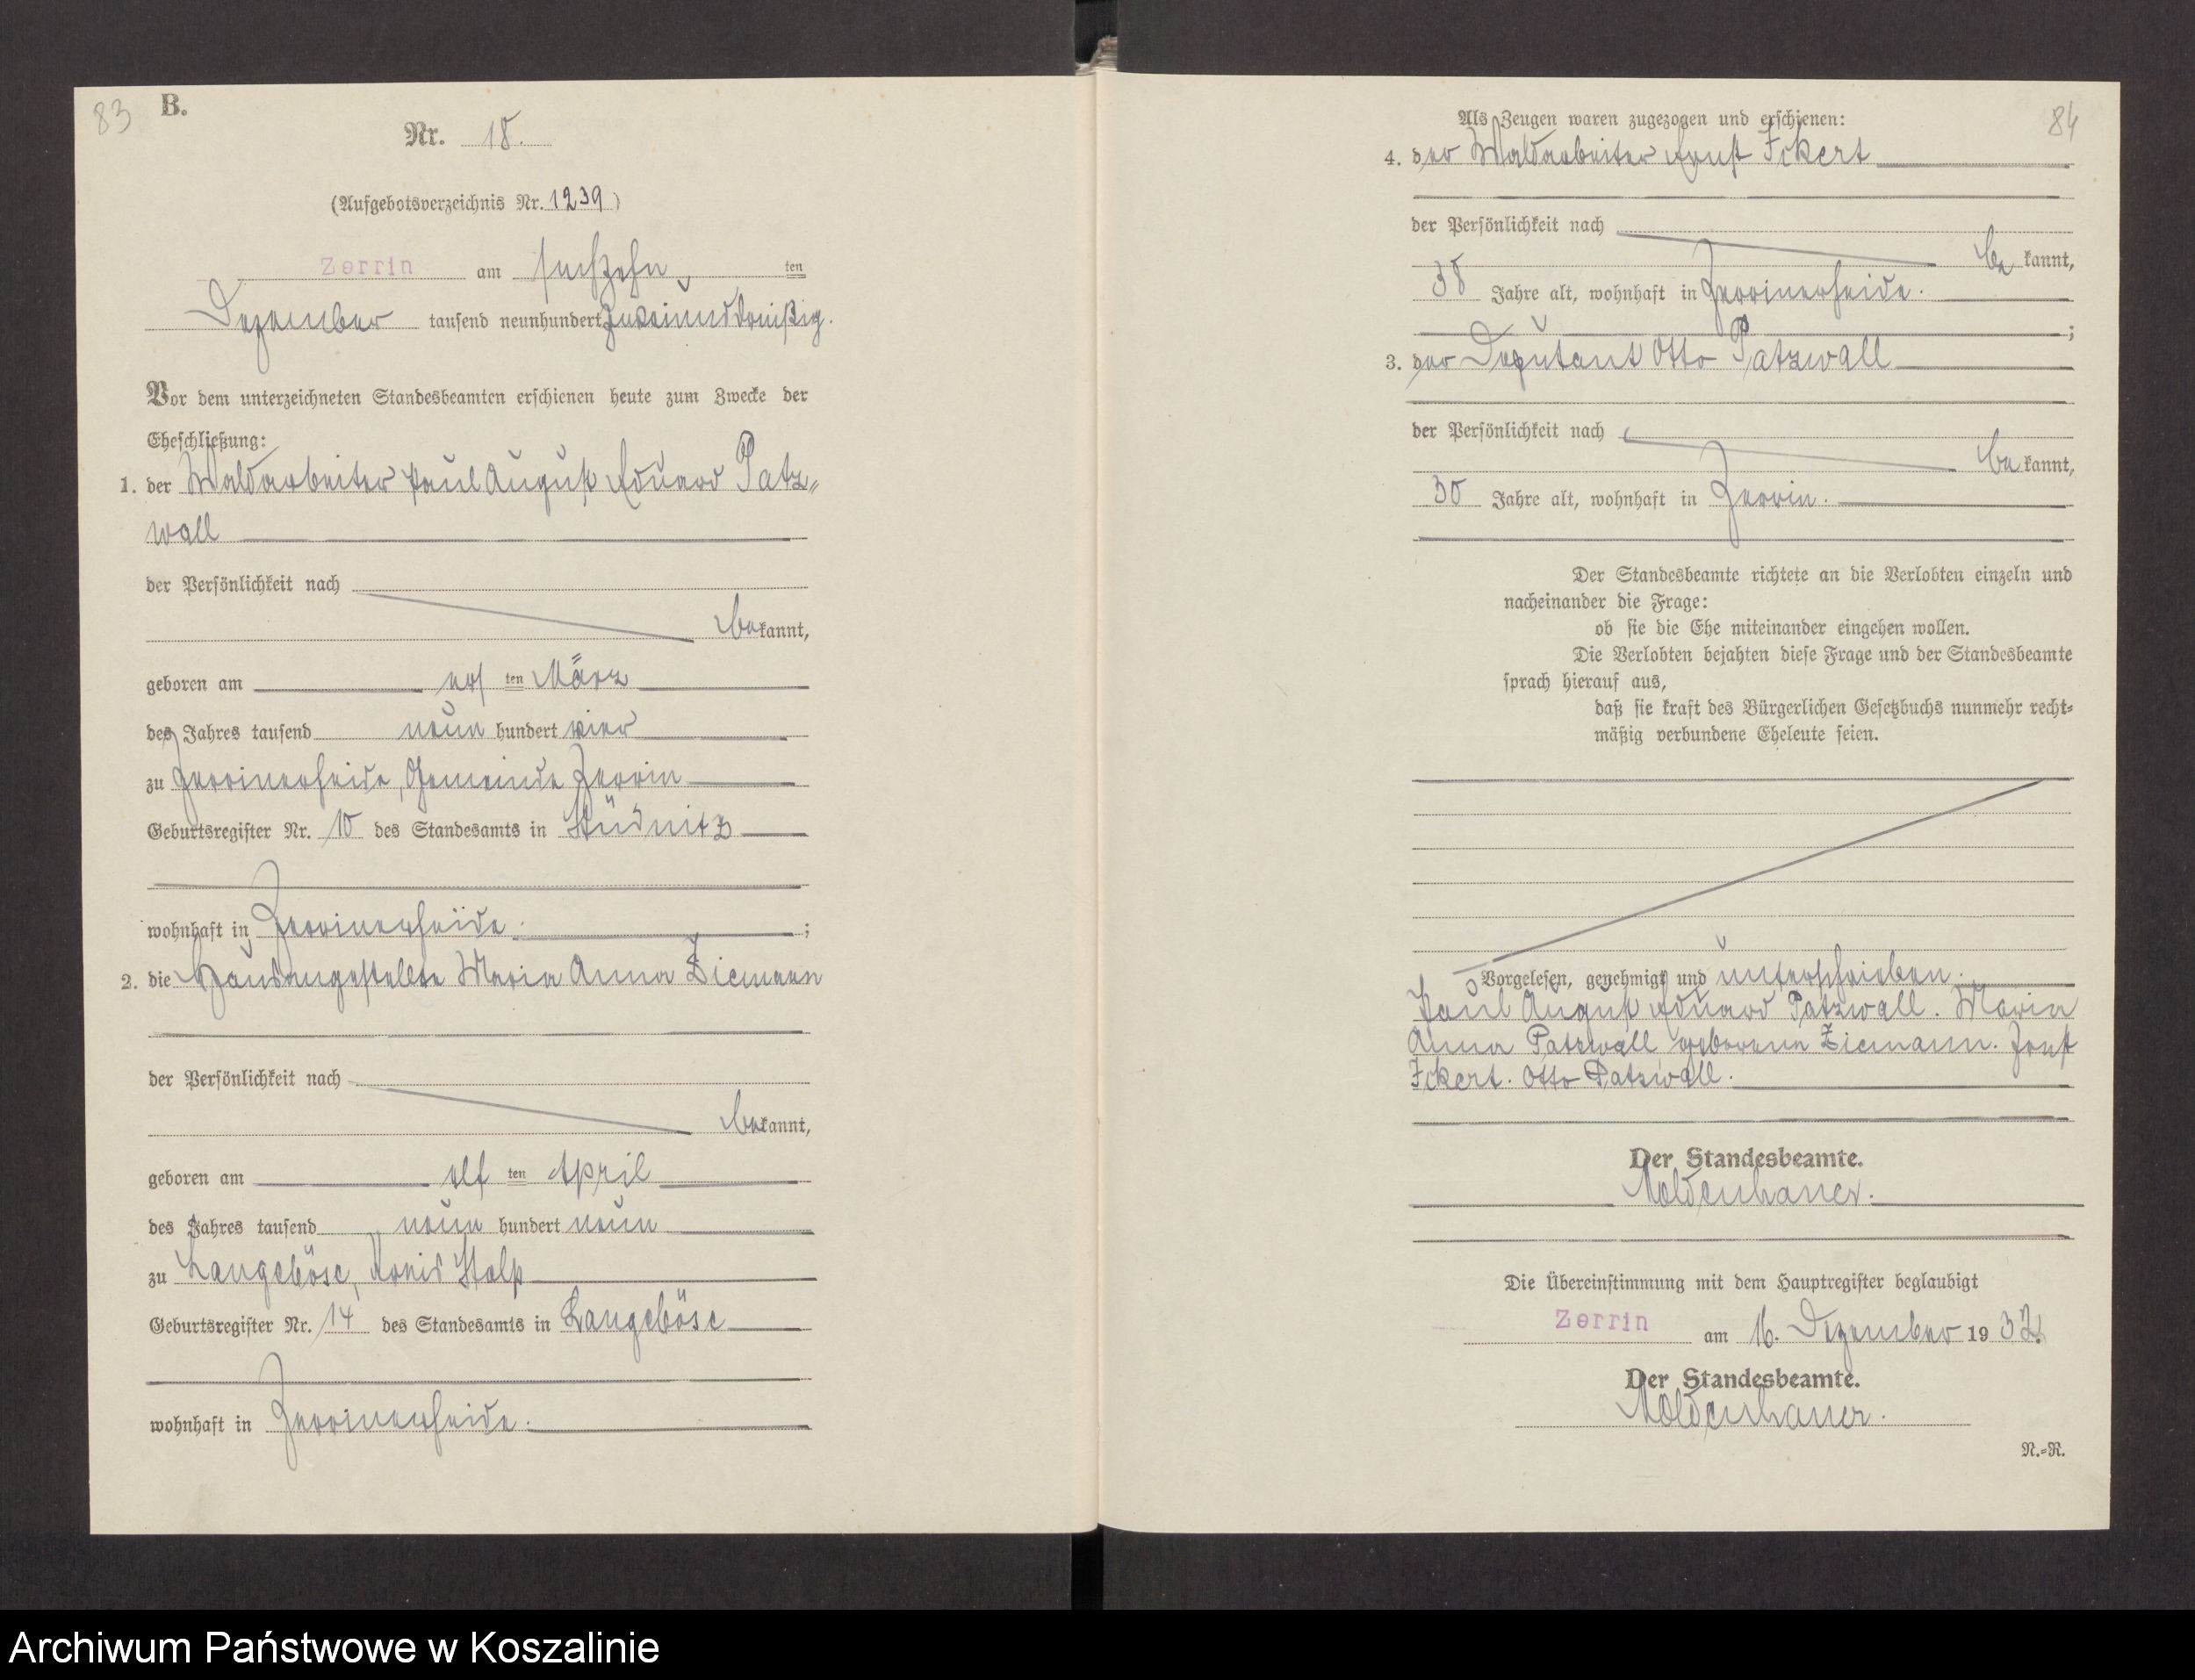 83
B.
Nr. 18.
(Aufgebotsverzeichnis Nr. 1239)
Zerrin am sechzehn ten
Dezember tausend neunhundert zweiunddreißig.
Vor dem unterzeichneten Standesbeamten erschienen heute zum Zwecke der
Eheschließung:
1. der Waldarbeiter Paul August Eduard Patz„
wall
der Persönlichkeit nach
be kannt,
geboren am ers ten März
des Jahres tausend neun hundert vier
zu Zerrinerheide, Gemeinde Zerrin
Geburtsregister Nr. 10 des Standesamts in Stüdnitz
wohnhaft in Zerrinerheide. ;
2. die Hausangestellte Maria Anna Ziemann
der Persönlichkeit nach
be kannt,
geboren am elf ten April
des Jahres tausend neun hundert neun
zu Langeböse, Kreis Stolp
Geburtsregister Nr. 14 des Standesamts in Langeböse
wohnhaft in Zerrinerheide.
84
Als Zeugen waren zugezogen und erschienen:
4. der Waldarbeiter Ernst Ickert
der Persönlichkeit nach
be kannt,
38 Jahre alt, wohnhaft in Zerrinerheide.
;
3. der Deputant Otto Patzwall
der Persönlichkeit nach
be kannt,
30 Jahre alt, wohnhaft in Zerrin.
Der Standesbeamte richtete an die Verlobten einzeln und
nacheinander die Frage:
ob sie die Ehe miteinander eingehen wollen.
Die Verlobten bejahten diese Frage und der Standesbeamte
sprach hierauf aus,
daß sie kraft des Bürgerlichen Gesetzbuchs nunmehr recht-
mäßig verbundene Eheleute seien.
Vorgelesen, genehmigt und unterschrieben.
Paul August Eduard Patzwall. Maria
Anna Patzwall geborene Ziemann. Ernst
Ickert. Otto Patzwall.
Der Standesbeamte.
Moldenhauer.
Die Übereinstimmung mit dem Hauptregister beglaubigt
Zerrin am 16. Dezember 19 32.
Der Standesbeamte.
Moldenhauer.
N.-R.
Archiwum Państwowe w Koszalinie